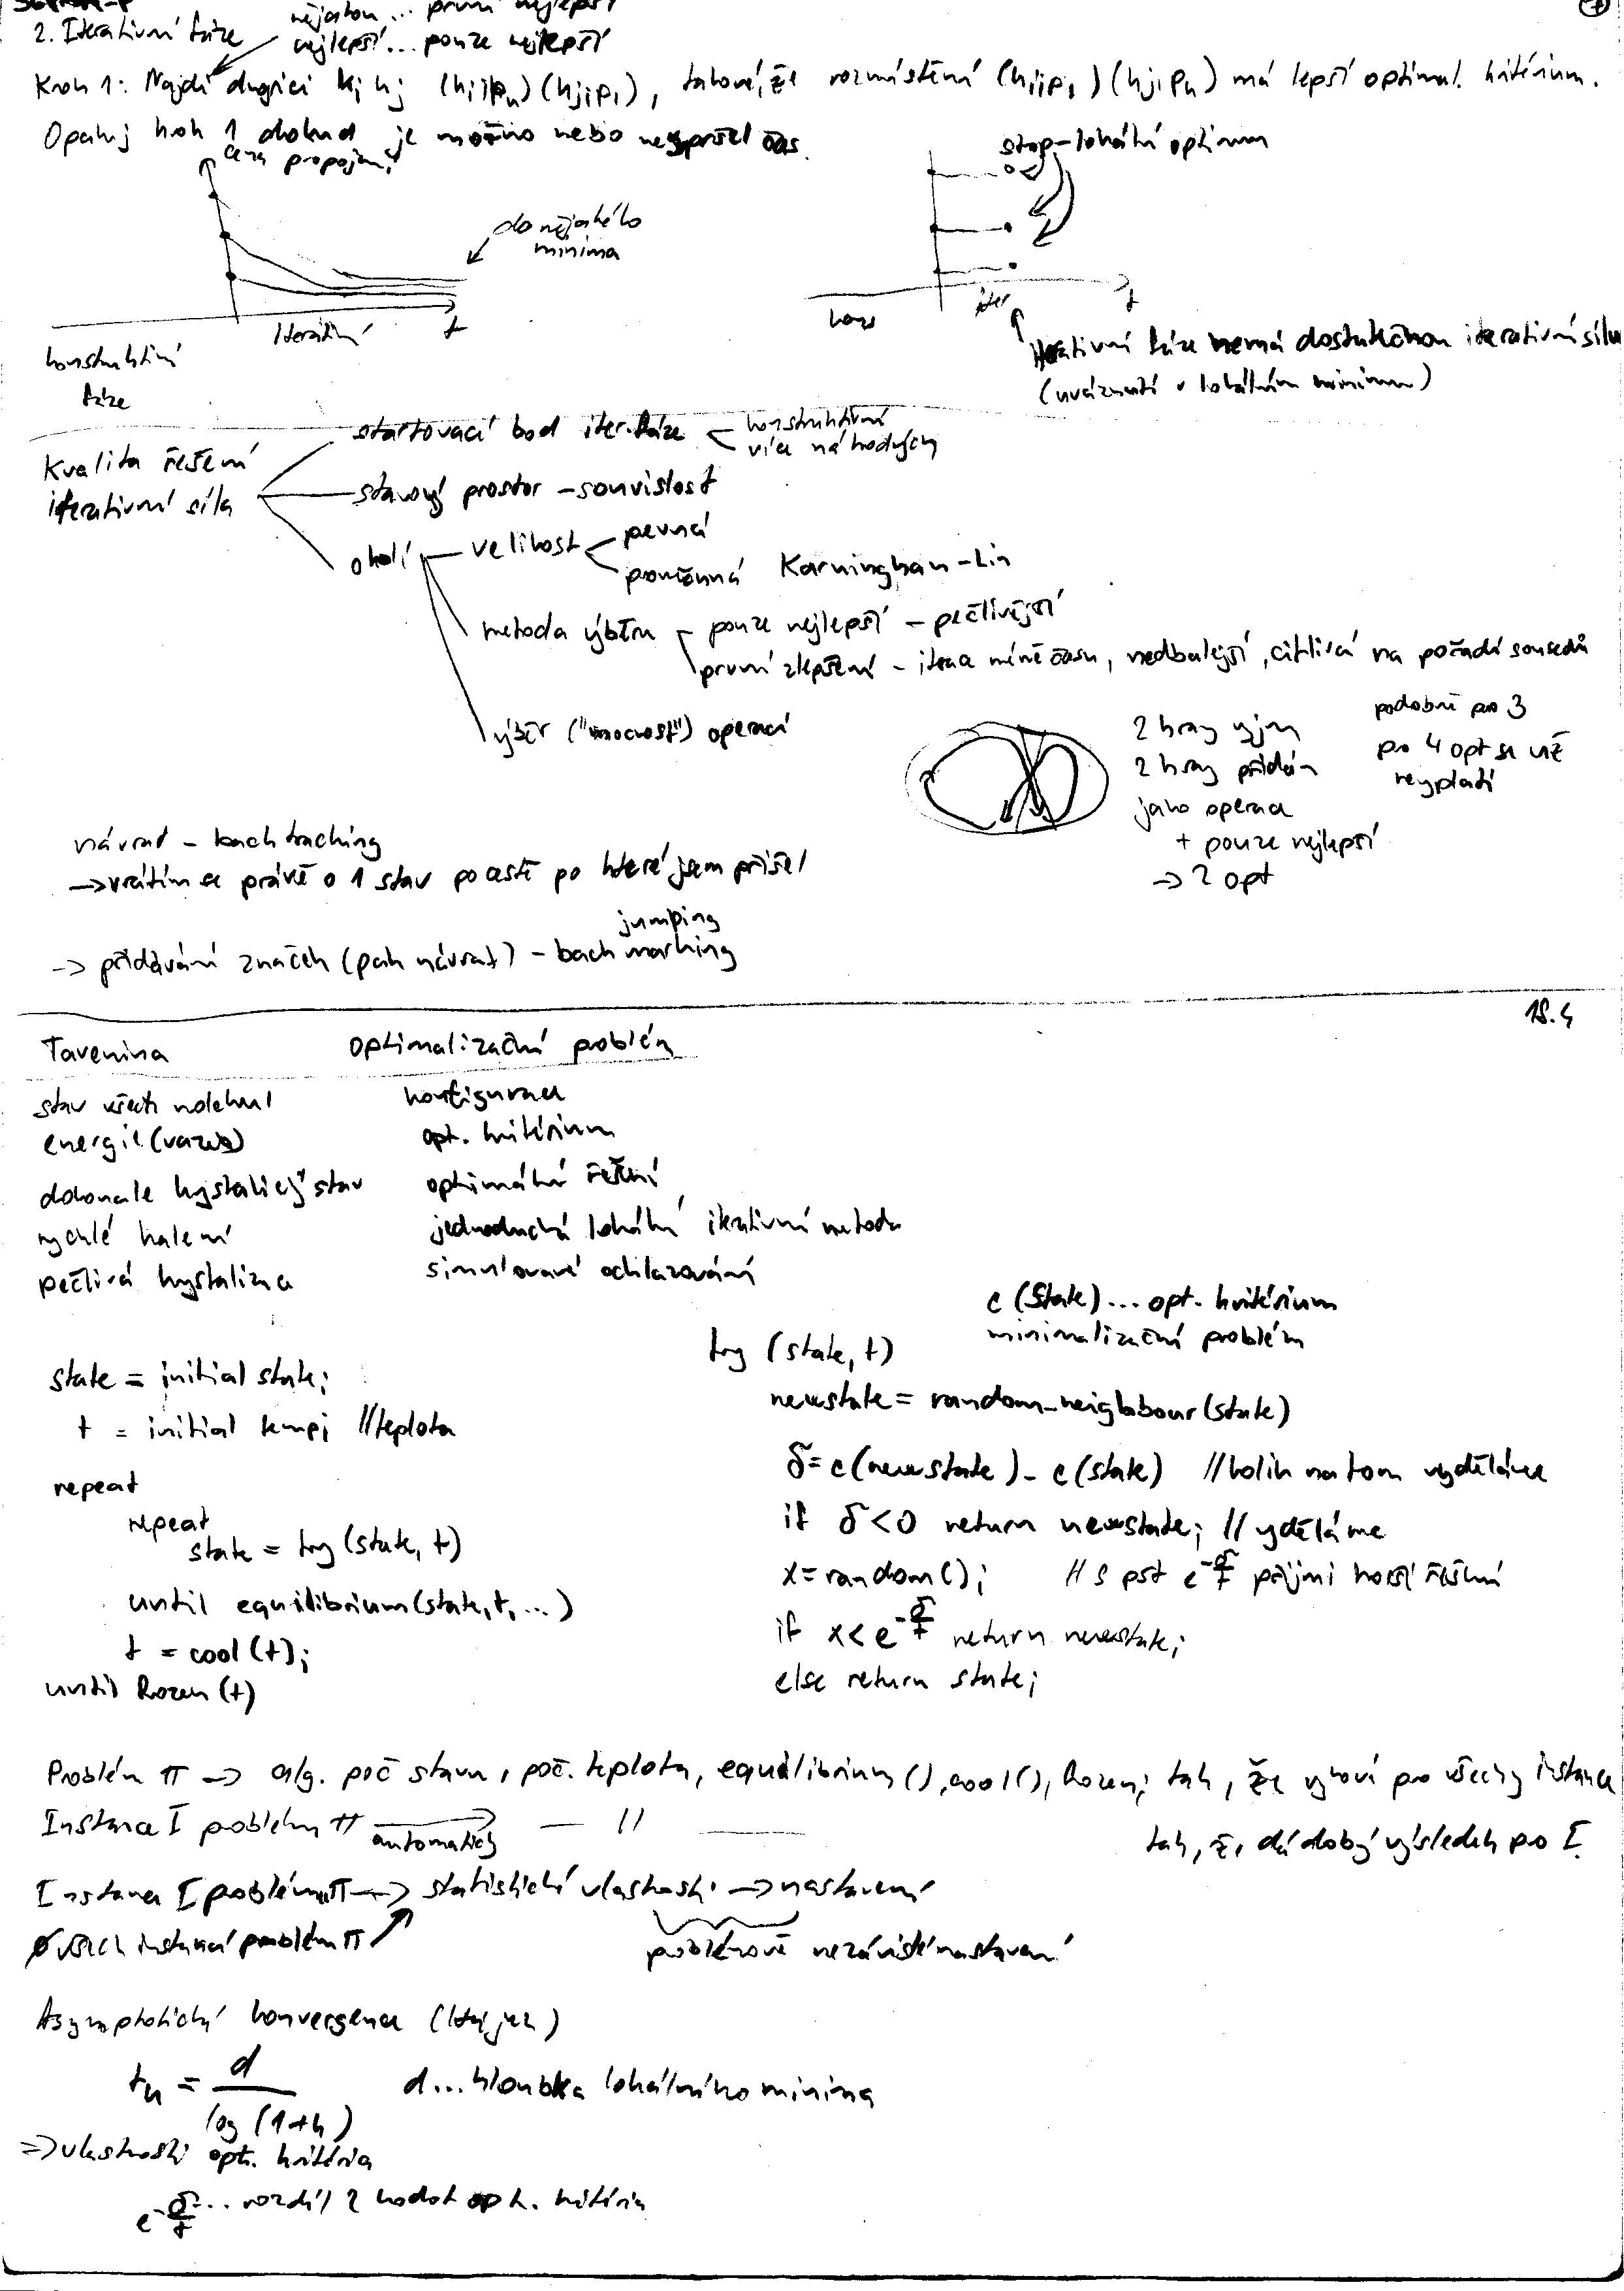 nějakou... první nejlepší
2. Iterativní fáze nejlepší... pouze nejlepší
Krok 1: Najdi dvojici ki kj (ki,pk)(kj,pl), takové, že rozmístění (ki,pl)(kj,pk) má lepší optimal. kritérium.
Opakuj krok 1 dokud je možno nebo nevypršel čas.
cena propojení
do nějakého
minima
Iterativní
t
konstruktivní
fáze
stop - lokální optimum
kons
iter
t
Iterativní fáze nemá dostatečnou iterativní sílu
(uváznutí v lokálním minimu)
Kvalita řešení
iterativní síla
startovací bod iter. fáze
konstruktivní
více náhodných
stavový prostor - souvislost
okolí
velikost
pevná
proměnná Karninghan-Lin
metoda výběru
pouze nejlepší - pečlivější
první zlepšení - méně času, nedbalejší, citlivá na pořadí sousedů
výběr ("mocnost") operací
2 hrany vyjmu
2 hrany přidám
jako operace
+ pouze nejlepší
-> 2 opt
podobně pro 3
pro 4 opt se už
nevyplatí
návrat - backtracking
-> vrátím se právě o 1 stav po cestě po které jsem přišel
jumping
-> přidávání značek (pak návrat) - back marking
18.4
Tavenina optimalizační problém
stav všech molekul konfigurace
energie (vazeb) opt. kritérium
dokonale krystalický stav optimální řešení
rychlé kalení jednoduchá lokální iterativní metoda
pečlivá krystalizace simulované ochlazování
c (State)... opt. kritérium
minimalizační problém
state = initial state;
t = initial temp; //teplota
repeat
repeat
state = try (state, t)
until equilibrium(state, t, ...)
t = cool (t);
until frozen (t)
try (state, t)
newstate = random_neighbour(state)
δ = c(newstate) - c(state) //kolik na tom vyděláme
if δ<0 return newstate; // vyděláme
x = random(); // s pst e^-δ/t přijmi horší řešení
if x < e^-δ/t return newstate;
else return state;
Problém π -> alg. poč stavu, poč. teplota, equilibrium(), cool(), frozen; tak, že vyhoví pro všechny instance
Instance I problému π automaticky -> — // — tak, že dá dobrý výsledek pro I.
Instance I problému π -> statistické vlastnosti -> nastavení
Ø všech instancí problém π
problémově nezávislé nastavení
Asymptotická konvergence
tk = d / log (1+k) d... hloubka lokálního minima
=> vlastnosti opt. kritéria
e^-δ/t ... rozdíl 2 hodnot opt. kritéria